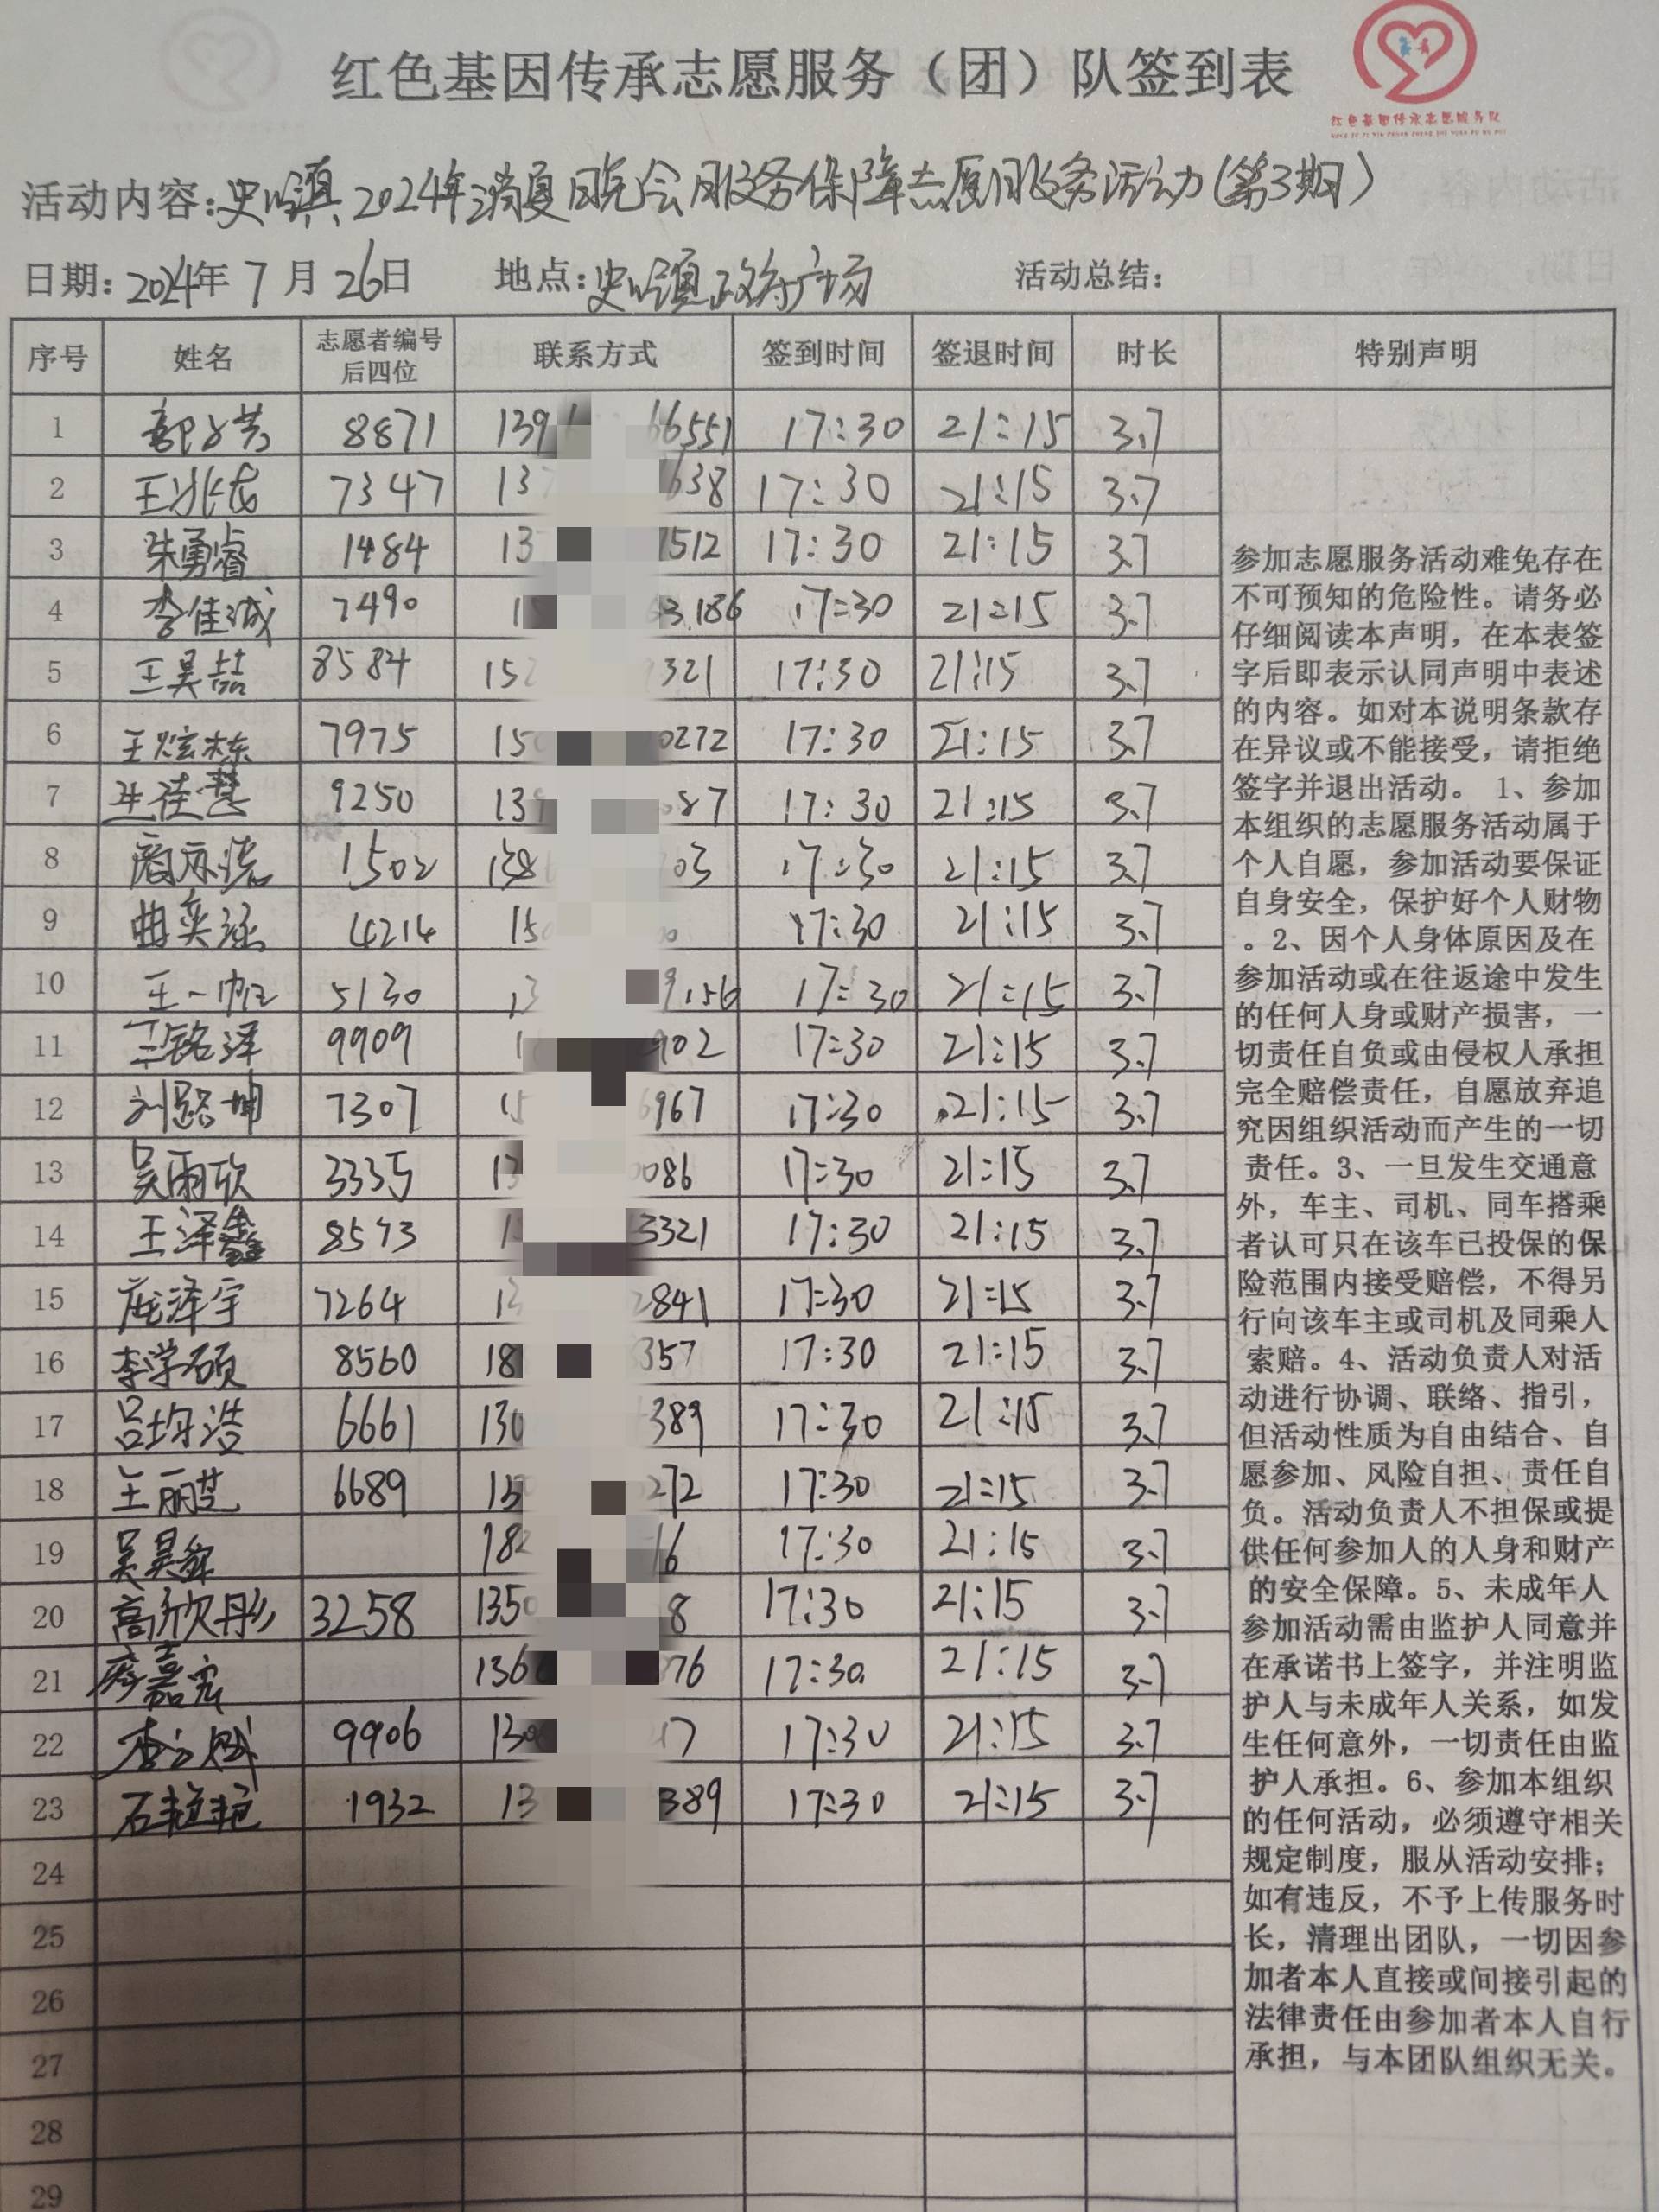 红色基因传承志愿服务（团）队签到表
红色基因传承志愿服务队
活动内容：史口镇2024年消夏晚会服务保障志愿服务活动（第3期）
日期：2024年7月26日 地点：史口镇政府广场 活动总结：
序号 姓名 志愿者编号后四位 联系方式 签到时间 签退时间 时长 特别声明
1 8871 139 66551 17:30 21:15 3.7
2 7347 137 638 17:30 21:15 3.7
3 朱勇睿 1484 13 7512 17:30 21:15 3.7
4 李佳诚 7490 1 3186 17:30 21:15 3.7
5 王昊喆 8584 152 321 17:30 21:15 3.7
6 王炫栋 7975 15 0272 17:30 21:15 3.7
7 9250 139 687 17:30 21:15 3.7
8 1502 138 03 17:30 21:15 3.7
9 曲奕涵 4214 150 17:30 21:15 3.7
10 王一帆 5130 13 9156 17:30 21:15 3.7
11 王铭泽 9909 1 902 17:30 21:15 3.7
12 刘路坤 7307 15 6967 17:30 21:15 3.7
13 吴雨欣 3335 13 0086 17:30 21:15 3.7
14 王泽鑫 8573 1 3321 17:30 21:15 3.7
15 庞泽宇 7264 13 2841 17:30 21:15 3.7
16 李学硕 8560 18 357 17:30 21:15 3.7
17 吕均浩 6661 130 389 17:30 21:15 3.7
18 王丽芝 6689 15 272 17:30 21:15 3.7
19 182 16 17:30 21:15 3.7
20 高欣彤 3258 1350 8 17:30 21:15 3.7
21 136 376 17:30 21:15 3.7
22 9906 130 17 17:30 21:15 3.7
23 石艳艳 1932 13 389 17:30 21:15 3.7
24
25
26
27
28
29
参加志愿服务活动难免存在
不可预知的危险性。请务必
仔细阅读本声明，在本表签
字后即表示认同声明中表述
的内容。如对本说明条款存
在异议或不能接受，请拒绝
签字并退出活动。1、参加
本组织的志愿服务活动属于
个人自愿，参加活动要保证
自身安全，保护好个人财物
。2、因个人身体原因及在
参加活动或在往返途中发生
的任何人身或财产损害，一
切责任自负或由侵权人承担
完全赔偿责任，自愿放弃追
究因组织活动而产生的一切
责任。3、一旦发生交通意
外，车主、司机、同车搭乘
者认可只在该车已投保的保
险范围内接受赔偿，不得另
行向该车主或司机及同乘人
索赔。4、活动负责人对活
动进行协调、联络、指引，
但活动性质为自由结合、自
愿参加、风险自担、责任自
负。活动负责人不担保或提
供任何参加人的人身和财产
的安全保障。5、未成年人
参加活动需由监护人同意并
在承诺书上签字，并注明监
护人与未成年人关系，如发
生任何意外，一切责任由监
护人承担。6、参加本组织
的任何活动，必须遵守相关
规定制度，服从活动安排；
如有违反，不予上传服务时
长，清理出团队，一切因参
加者本人直接或间接引起的
法律责任由参加者本人自行
承担，与本团队组织无关。